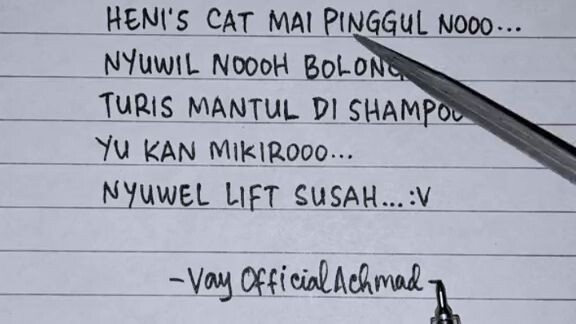 HENI'S CAT MAI PINGGUL NOOO...
NYUWIL NOOOH BOLONG
TURIS MANTUL DI SHAMPOO
YU KAN MIKIROOO...
NYUWEL LIFT SUSAH...:V
-Vay Official Achmad-